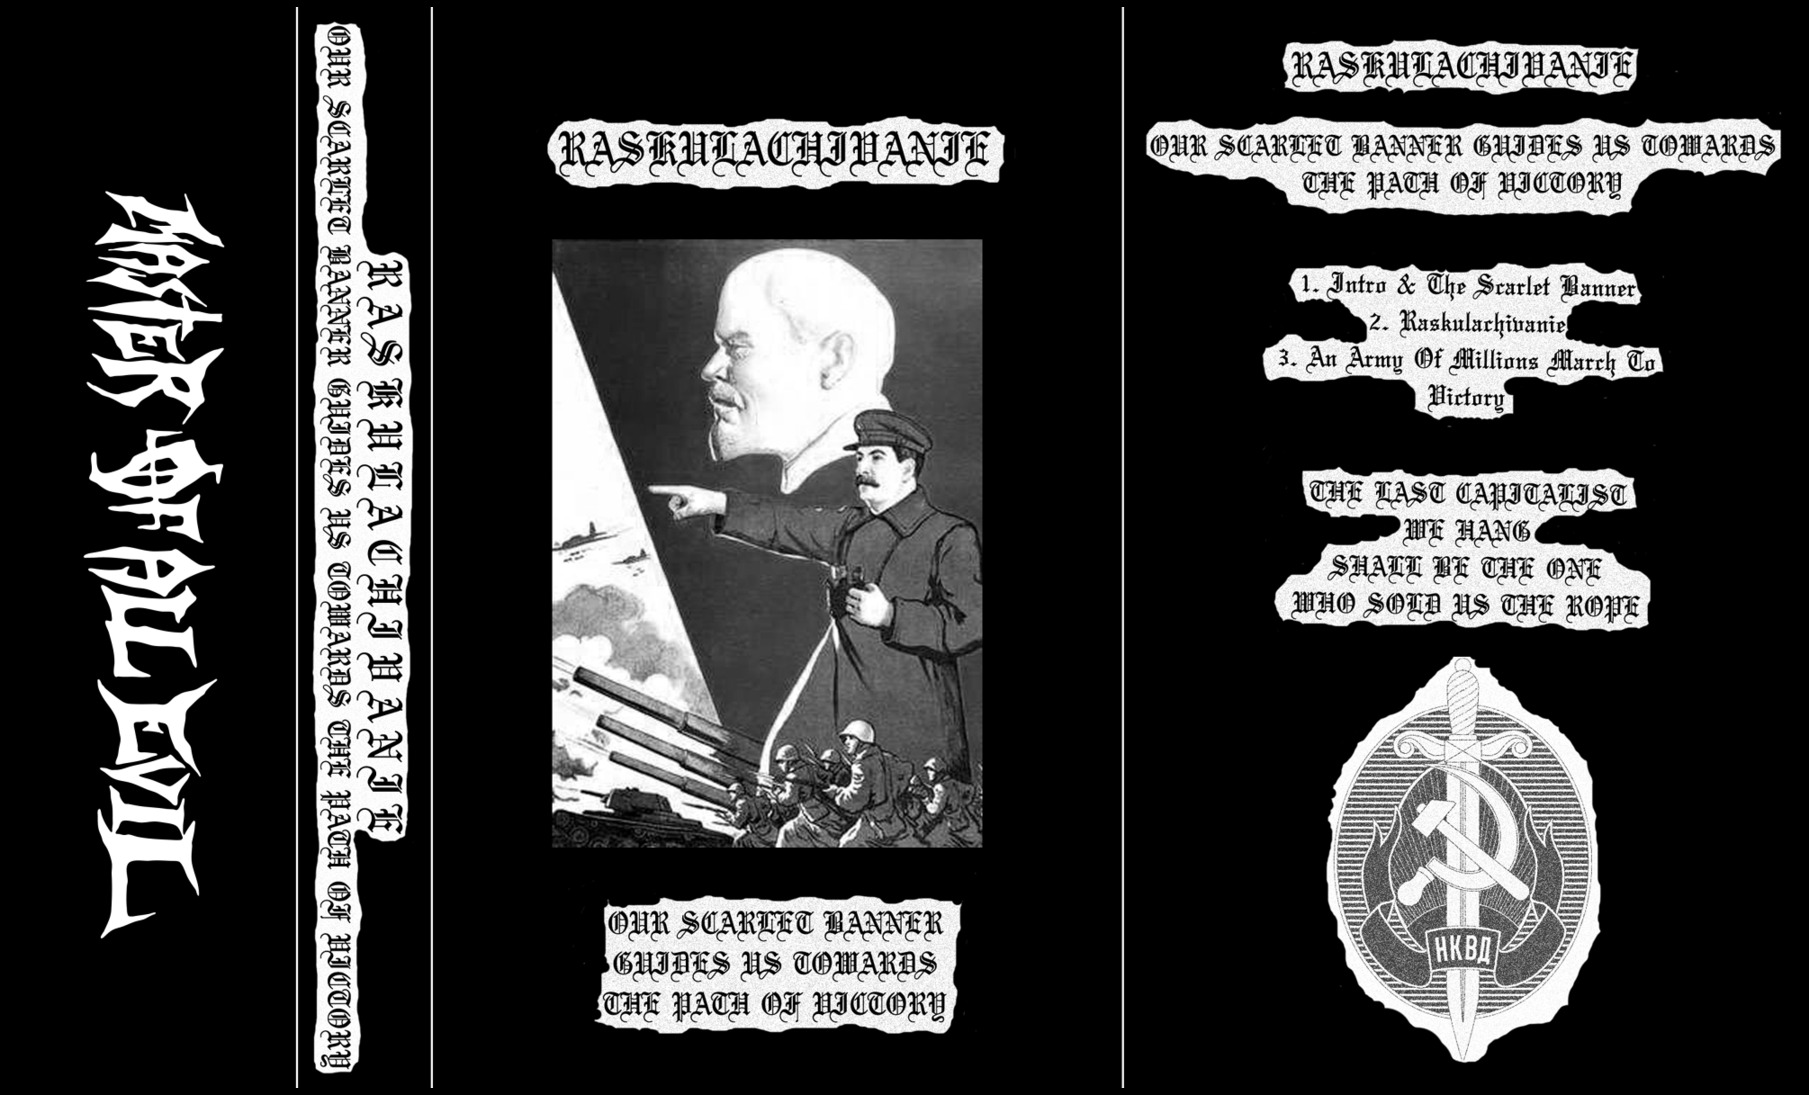 MASTER OF ALL EVIL
OUR SCARLET BANNER GUIDES US TOWARDS THE PATH OF VICTORY
RASKULACHIVANIE
RASKULACHIVANIE
OUR SCARLET BANNER
GUIDES US TOWARDS
THE PATH OF VICTORY
RASKULACHIVANIE
OUR SCARLET BANNER GUIDES US TOWARDS
THE PATH OF VICTORY
1. Intro & The Scarlet Banner
2. Raskulachivanie
3. An Army Of Millions March To
Victory
THE LAST CAPITALIST
WE HANG
SHALL BE THE ONE
WHO SOLD US THE ROPE
НКВД